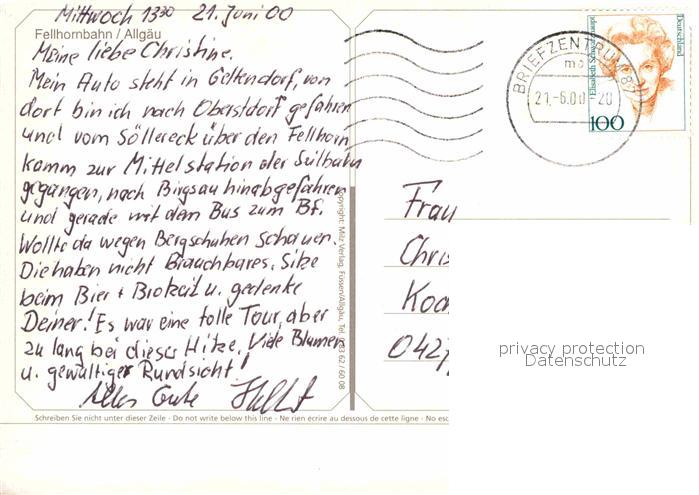 Mittwoch 13³⁰ 21. Juni 00
Fellhornbahn / Allgäu
Meine liebe Christine.
Mein Auto steht in Geltendorf, von
dort bin ich nach Oberstdorf gefahren
und vom Söllereck über den Fellhorn
kamm zur Mittelstation der Seilbahn
gegangen, nach Birgsau hinabgefahren
und gerade mit dem Bus zum Bf.
Wollte da wegen Bergschuhen schauen.
Die haben nicht Brauchbares. Sitze
beim Bier + Brotzeit u. gedenke
Deiner! Es war eine tolle Tour, aber
zu lang bei dieser Hitze. Viele Blumen
u. gewaltiger Rundsicht!
Alles Gute
Schreiben Sie nicht unter dieser Zeile - Do not write below this line - Ne rien écrire au dessous de cette ligne - No esc
Copyright: Milz Verlag, Füssen/Allgäu, Tel. 083 62 / 60 08
BRIEFZENTRUM 82
mb
21.-6.00-20
Deutschland
Elisabeth Schwarzhaupt
100
Frau
Chris
Koc
0427
privacy protection
Datenschutz